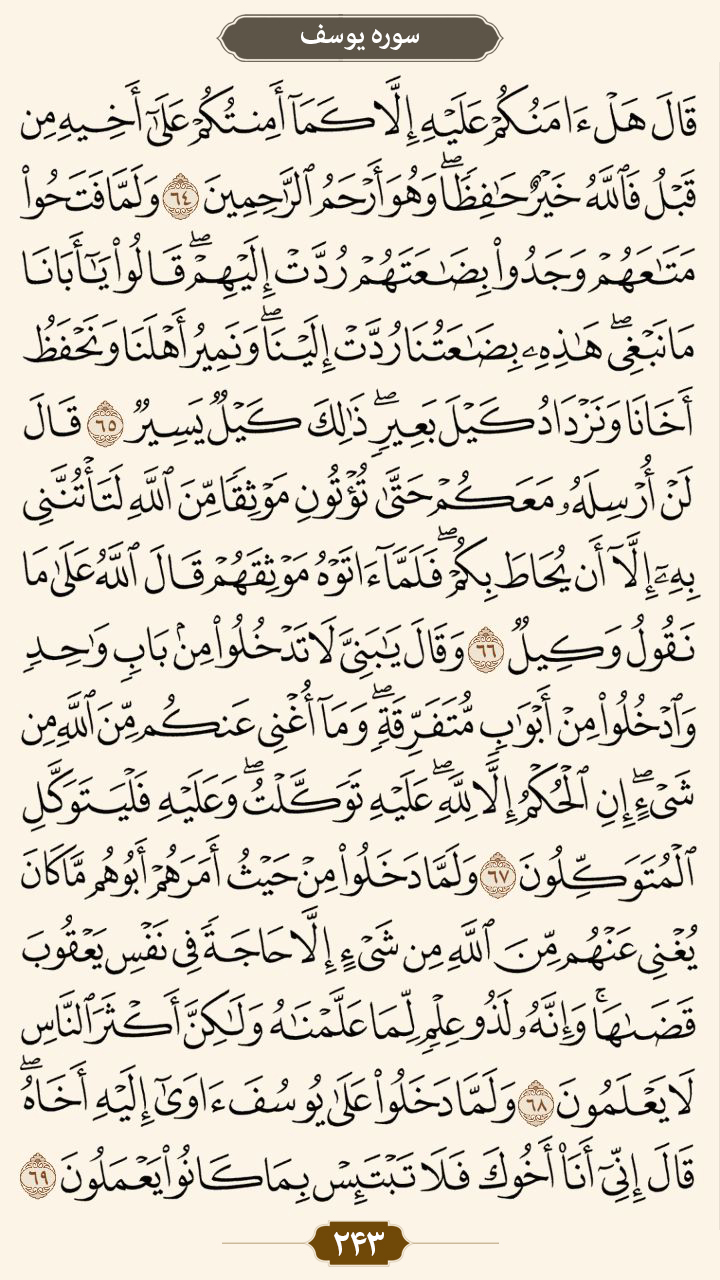 سوره یوسف
قَالَ هَلْ ءَامَنُكُمْ عَلَيْهِ إِلَّا كَمَآ أَمِنتُكُمْ عَلَىٰٓ أَخِيهِ مِن
قَبْلُ فَٱللَّهُ خَيْرٌ حَٰفِظًۭا ۖ وَهُوَ أَرْحَمُ ٱلرَّٰحِمِينَ ٦٤ وَلَمَّا فَتَحُوا۟
مَتَٰعَهُمْ وَجَدُوا۟ بِضَٰعَتَهُمْ رُدَّتْ إِلَيْهِمْ ۖ قَالُوا۟ يَٰٓأَبَانَا
مَا نَبْغِى ۖ هَٰذِهِۦ بِضَٰعَتُنَا رُدَّتْ إِلَيْنَا ۖ وَنَمِيرُ أَهْلَنَا وَنَحْفَظُ
أَخَانَا وَنَزْدَادُ كَيْلَ بَعِيرٍۢ ۖ ذَٰلِكَ كَيْلٌۭ يَسِيرٌۭ ٦٥ قَالَ
لَنْ أُرْسِلَهُۥ مَعَكُمْ حَتَّىٰ تُؤْتُونِ مَوْثِقًۭا مِّنَ ٱللَّهِ لَتَأْتُنَّنِى
بِهِۦٓ إِلَّآ أَن يُحَاطَ بِكُمْ ۖ فَلَمَّآ ءَاتَوْهُ مَوْثِقَهُمْ قَالَ ٱللَّهُ عَلَىٰ مَا
نَقُولُ وَكِيلٌۭ ٦٦ وَقَالَ يَٰبَنِىَّ لَا تَدْخُلُوا۟ مِنۢ بَابٍۢ وَٰحِدٍۢ
وَٱدْخُلُوا۟ مِنْ أَبْوَٰبٍۢ مُّتَفَرِّقَةٍۢ ۖ وَمَآ أُغْنِى عَنكُم مِّنَ ٱللَّهِ مِن
شَىْءٍ ۖ إِنِ ٱلْحُكْمُ إِلَّا لِلَّهِ ۖ عَلَيْهِ تَوَكَّلْتُ ۖ وَعَلَيْهِ فَلْيَتَوَكَّلِ
ٱلْمُتَوَكِّلُونَ ٦٧ وَلَمَّا دَخَلُوا۟ مِنْ حَيْثُ أَمَرَهُمْ أَبُوهُم مَّا كَانَ
يُغْنِى عَنْهُم مِّنَ ٱللَّهِ مِن شَىْءٍ إِلَّا حَاجَةًۭ فِى نَفْسِ يَعْقُوبَ
قَضَىٰهَا ۚ وَإِنَّهُۥ لَذُو عِلْمٍۢ لِّمَا عَلَّمْنَٰهُ وَلَٰكِنَّ أَكْثَرَ ٱلنَّاسِ
لَا يَعْلَمُونَ ٦٨ وَلَمَّا دَخَلُوا۟ عَلَىٰ يُوسُفَ ءَاوَىٰٓ إِلَيْهِ أَخَاهُ ۖ
قَالَ إِنِّىٓ أَنَا۠ أَخُوكَ فَلَا تَبْتَئِسْ بِمَا كَانُوا۟ يَعْمَلُونَ ٦٩
۲۴۳